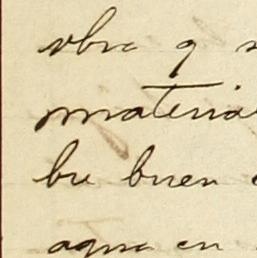 obra q
material
bre buen
agua en